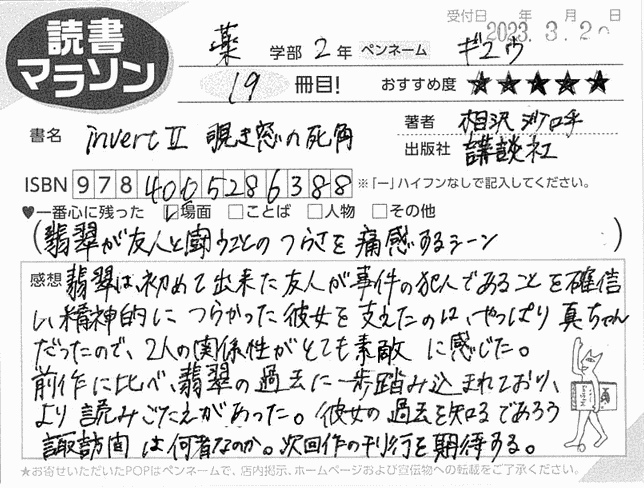 読書
マラソン
受付日 年 月 日
2023. 3. 2
薬 学部 2 年 ペンネーム ギユウ
19 冊目! おすすめ度 ★★★★★
書名 invert II 覗き窓の死角
著者 相沢沙呼
出版社 講談社
ISBN 9784065286388 ※「ー」ハイフンなしで記入してください。
♥一番心に残った ☑場面 □ことば □人物 □その他
(翡翠が友人と闘うことのつらさを痛感するシーン)
感想 翡翠は、初めて出来た友人が事件の犯人であることを確信
し、精神的につらかった彼女を支えたのは、やっぱり真ちゃん
だったので、2人の関係性がとても素敵に感じた。
前作に比べ、翡翠の過去に一歩踏み込まれており、
より読みごたえがあった。彼女の過去を知るであろう
諏訪間は何者なのか。次回作の刊行を期待する。
★お寄せいただいたPOPはペンネームで、店内掲示、ホームページおよび宣伝物への転載をご了承ください。